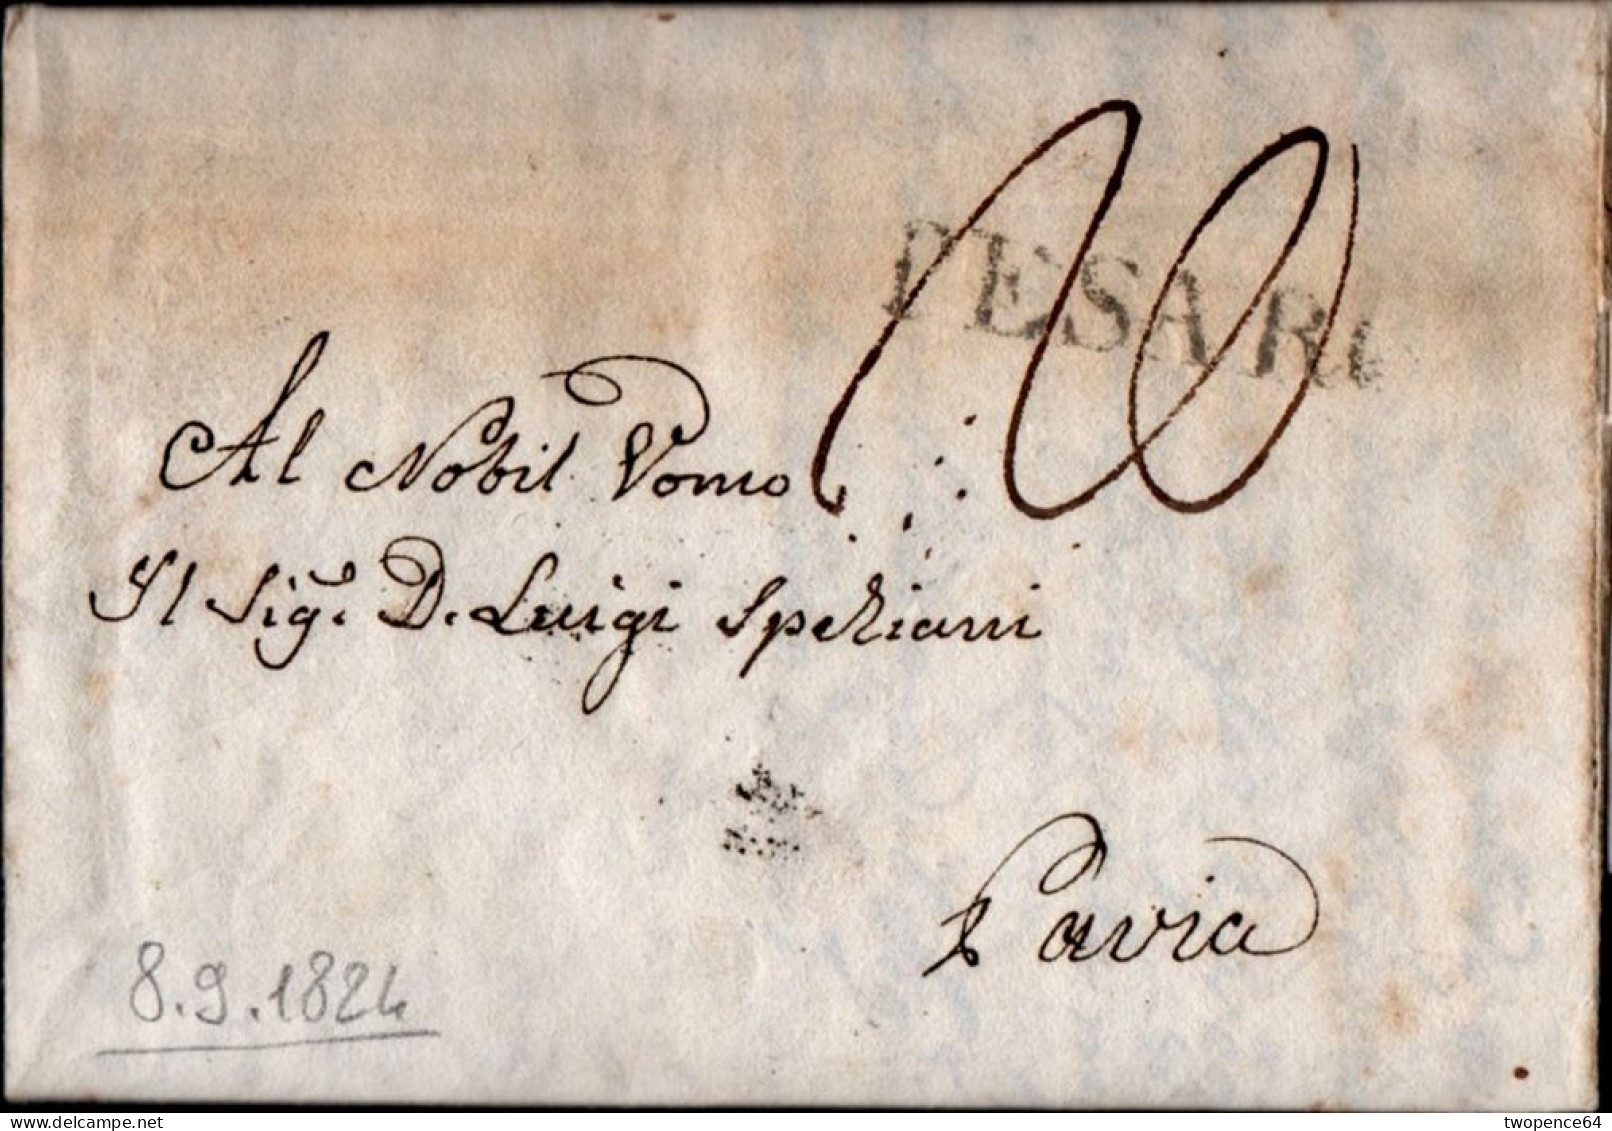 PESARO
Al Nobil Vomo
Il Sig.r D. Luigi Speziani
Pavia
8.9.1824
www.delcampe.net
twopence64